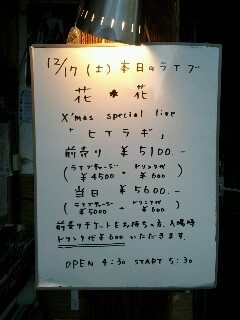 12/17 (土) 本日のライブ
花*花
X'mas special live
「ヒイラギ」
前売り ¥5100.-
(ライブチャージ ¥4500 + ドリンク代 ¥600)
当日 ¥5600.-
(ライブチャージ ¥5000 + ドリンク代 ¥600)
前売りチケットをお持ちの方、入場時
ドリンク代¥600いただきます。
OPEN 4:30 START 5:30